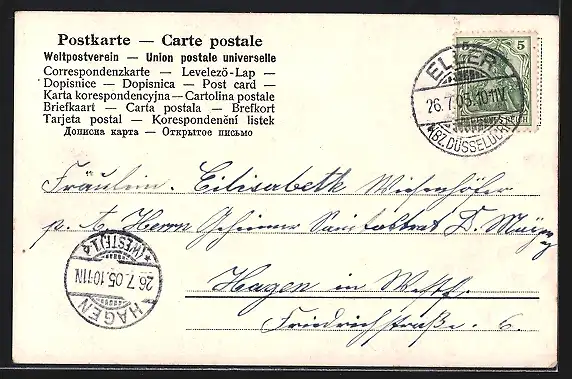 Postkarte — Carte postale
Weltpostverein — Union postale universelle
Correspondenzkarte — Levelező-Lap —
Dopisnice — Dopisnica — Post card —
Karta korespondencyjna — Cartolina postale
Briefkaart — Carta postala — Brefkort
Tarjeta postal — Korespondenční listek
Дописна карта — Открытое письмо
5
ELLER
26.7.05.10-11V.
(BZ. DÜSSELDORF)
Fräulein. Elisabeth Wiesenhöfer
p. A. Herrn Geheimer Sanitätsrat D.
Hagen in Westf.
Friedrichstraße. 6.
HAGEN
26.7.05.10-11N
(WESTF.) 1